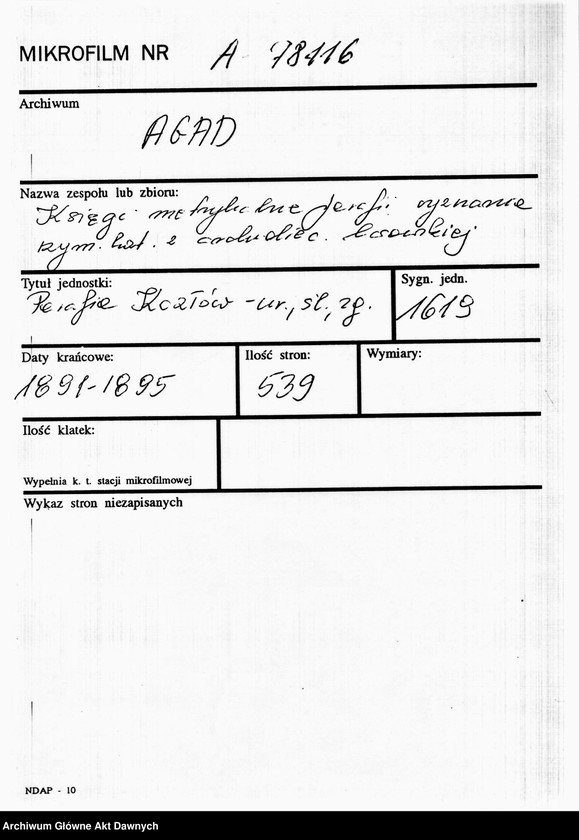 MIKROFILM NR A 78116
Archiwum
AGAD
Nazwa zespołu lub zbioru:
Księgi metrykalne parafii wyznania
rzym. kat. z archidiec. lwowskiej
Tytuł jednostki:
Parafia Kozłów - ur., śl., zg.
Sygn. jedn.
1619
Daty krańcowe:
1891-1895
Ilość stron:
539
Wymiary:
Ilość klatek:
Wypełnia k. t. stacji mikrofilmowej
Wykaz stron niezapisanych
NDAP - 10
Archiwum Główne Akt Dawnych